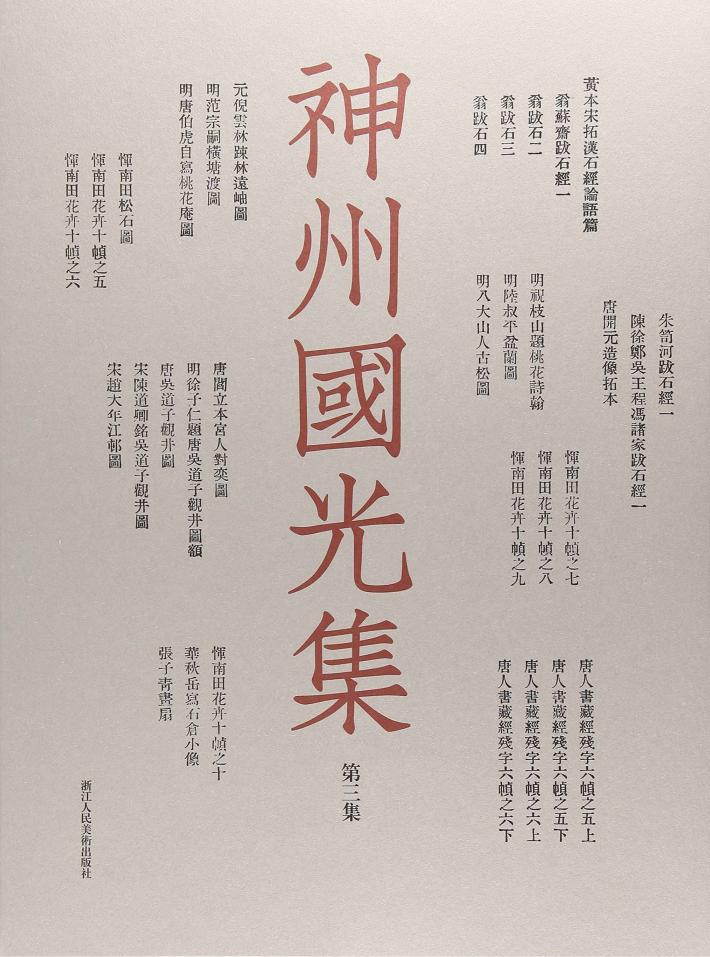 神州國光集
第三集
黃本宋拓漢石經論語篇
翁蘇齋跋石經一
翁跋石二
翁跋石三
翁跋石四
朱笥河跋石經一
陳徐鄭吳王程馮諸家跋石經一
唐開元造像拓本
明祝枝山題桃花詩翰
明陸叔平盆蘭圖
明八大山人古松圖
惲南田花卉十幀之七
惲南田花卉十幀之八
惲南田花卉十幀之九
唐人書藏經殘字六幀之五上
唐人書藏經殘字六幀之五下
唐人書藏經殘字六幀之六上
唐人書藏經殘字六幀之六下
元倪雲林踈林遠岫圖
明范宗嗣橫塘渡圖
明唐伯虎自寫桃花庵圖
惲南田松石圖
惲南田花卉十幀之五
惲南田花卉十幀之六
唐閻立本宮人對奕圖
明徐子仁題唐吳道子觀井圖額
唐吳道子觀井圖
宋陳道卿銘吳道子觀井圖
宋趙大年江邨圖
惲南田花卉十幀之十
華秋岳寫石倉小像
張子青畫扇
浙江人民美術出版社